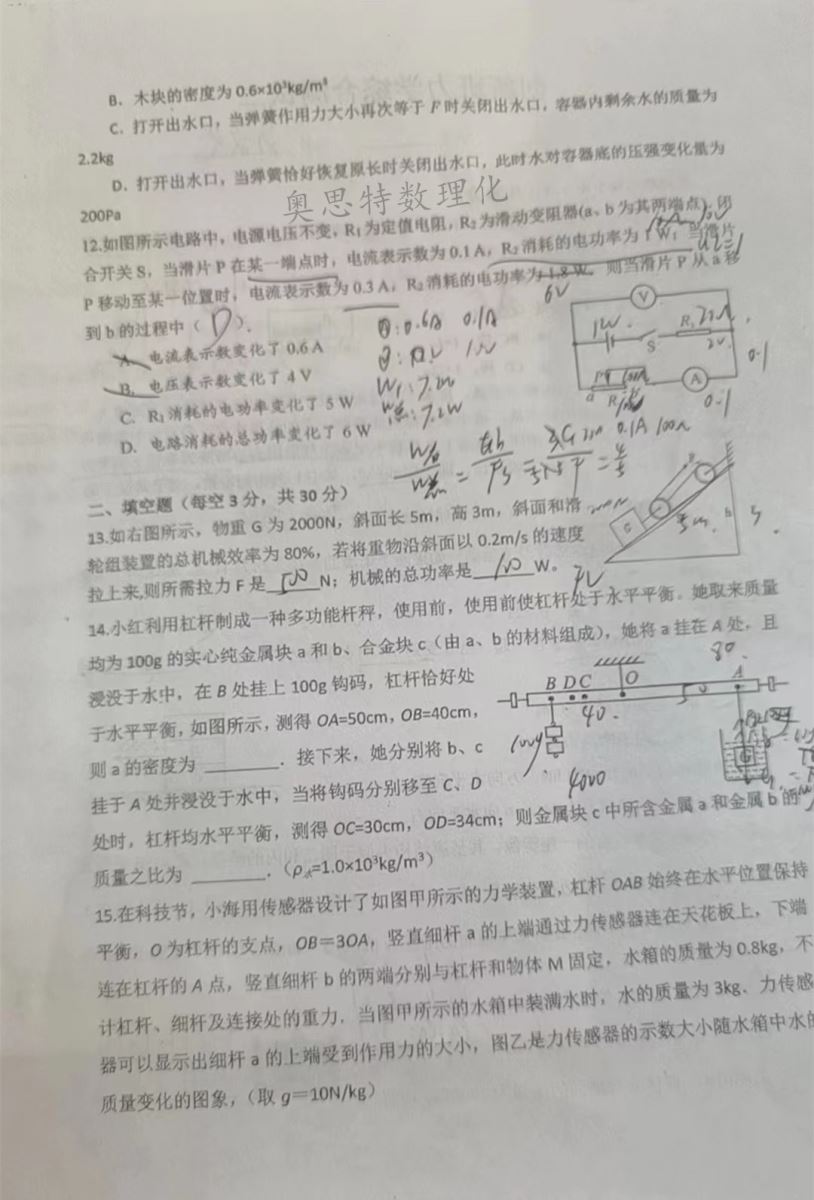 B. 木块的密度为 0.6×10³kg/m³
C. 打开出水口，当弹簧作用力大小再次等于 F 时关闭出水口，容器内剩余水的质量为
2.2kg
D. 打开出水口，当弹簧恰好恢复原长时关闭出水口，此时水对容器底的压强变化量为
200Pa
奥思特数理化
12.如图所示电路中，电源电压不变，R₁为定值电阻，R₂为滑动变阻器(a、b 为其两端点).闭
合开关 S，当滑片 P 在某一端点时，电流表示数为 0.1 A，R₂消耗的电功率为 1 W；当滑片
P 移动至某一位置时，电流表示数为 0.3 A，R₂消耗的电功率为 1.8 W. 则当滑片 P 从 a 移
6V
到 b 的过程中（ D ）.
A. 电流表示数变化了 0.6 A
B. 电压表示数变化了 4 V
C. R₁消耗的电功率变化了 5 W
D. 电路消耗的总功率变化了 6 W
0.6A 0.1A
W₁: 7.2W
7.2W
V
12V
S
R₁
2V
a
A
0.1
0.1
0.1A 100Ω
二、填空题（每空 3 分，共 30 分）
13.如右图所示，物重 G 为 2000N，斜面长 5m，高 3m，斜面和滑
轮组装置的总机械效率为 80%，若将重物沿斜面以 0.2m/s 的速度
拉上来,则所需拉力 F 是 500 N；机械的总功率是 100 W。
G
5m
h
14.小红利用杠杆制成一种多功能杆秤，使用前，使用前使杠杆处于水平平衡。她取来质量
均为 100g 的实心纯金属块 a 和 b、合金块 c（由 a、b 的材料组成），她将 a 挂在 A 处，且
浸没于水中，在 B 处挂上 100g 钩码，杠杆恰好处
于水平平衡，如图所示，测得 OA=50cm，OB=40cm，
则 a 的密度为 ________. 接下来，她分别将 b、c
挂于 A 处并浸没于水中，当将钩码分别移至 C、D
处时，杠杆均水平平衡，测得 OC=30cm，OD=34cm；则金属块 c 中所含金属 a 和金属 b 的
质量之比为 ________.（ρ水=1.0×10³kg/m³）
80.
B D C O A
40.
50
100g
4000
15.在科技节，小海用传感器设计了如图甲所示的力学装置，杠杆 OAB 始终在水平位置保持
平衡，O 为杠杆的支点，OB＝3OA，竖直细杆 a 的上端通过力传感器连在天花板上，下端
连在杠杆的 A 点，竖直细杆 b 的两端分别与杠杆和物体 M 固定，水箱的质量为 0.8kg，不
计杠杆、细杆及连接处的重力．当图甲所示的水箱中装满水时，水的质量为 3kg．力传感
器可以显示出细杆 a 的上端受到作用力的大小，图乙是力传感器的示数大小随水箱中水的
质量变化的图象，（取 g＝10N/kg）